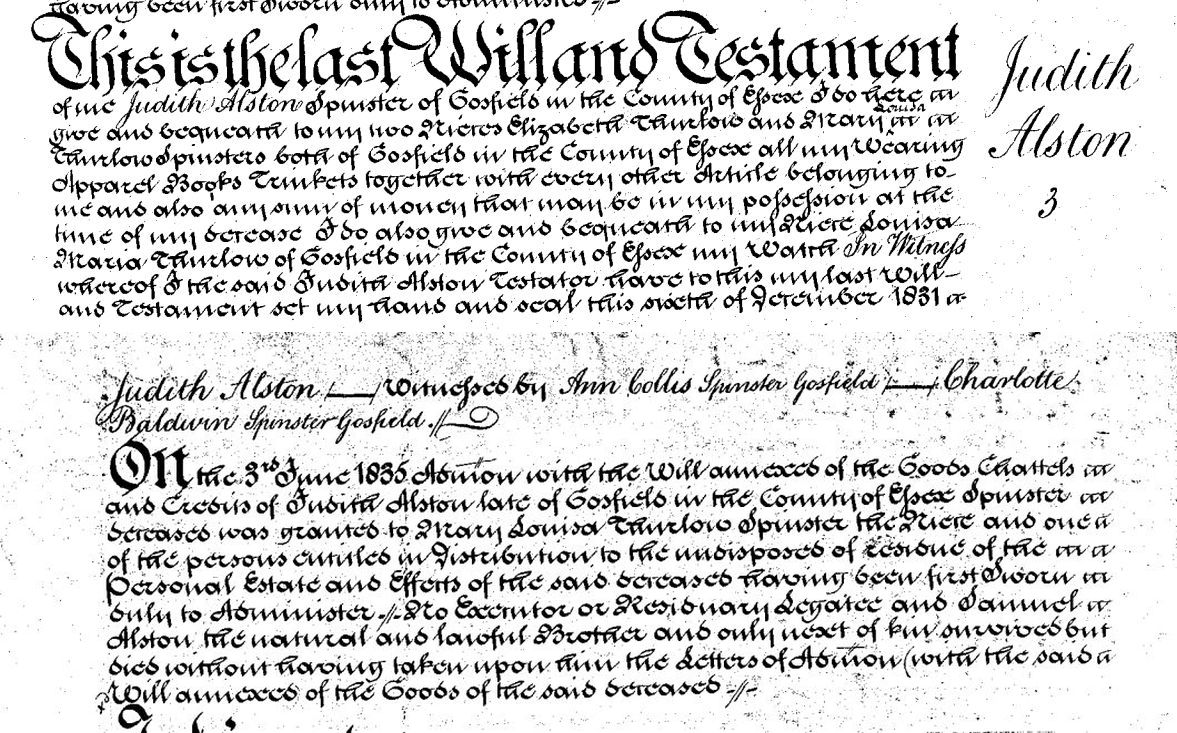 having been first Sworn duly to Administer
This is the last Will and Testament
of me Judith Alston Spinster of Gosfield in the County of Essex I do here
Louisa
give and bequeath to my two Nieces Elizabeth Thurlow and Mary
Thurlow Spinsters both of Gosfield in the County of Essex all my Wearing
Apparel Books Trinkets together with every other Article belonging to
me and also any sum of money that may be in my possession at the
time of my decease I do also give and bequeath to my Niece Louisa
Maria Thurlow of Gosfield in the County of Essex my Watch In Witness
whereof I the said Judith Alston Testator have to this my last Will
and Testament set my hand and seal this sixth of December 1831
Judith
Alston
3
Judith Alston Witnessed by Ann Collis Spinster Gosfield Charlotte
Baldwin Spinster Gosfield.
On the 3rd June 1835 Admon with the Will annexed of the Goods Chattels
and Credits of Judith Alston late of Gosfield in the County of Essex Spinster
deceased was granted to Mary Louisa Thurlow Spinster the Niece and one
of the persons entitled in Distribution to the undisposed of residue of the
Personal Estate and Effects of the said deceased having been first Sworn
duly to Administer No Executor or Residuary Legatee and Samuel
Alston the natural and lawful Brother and only next of kin survived but
died without having taken upon him the Letters of Admon (with the said
Will annexed of the Goods of the said deceased